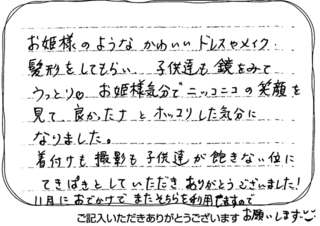 お姫様のようなかわいいドレスやメイク
髪形をしてもらい、子供達も鏡をみて
うっとり♡ お姫様気分でニッコニコの笑顔を
見て良かったナとホッコリした気分に
なりました。
着付けも撮影も子供達が飽きない位に
てきぱきとしていただきありがとうございました!
11月におでかけでまたそちらを利用しますので
ご記入いただきありがとうございます お願いします